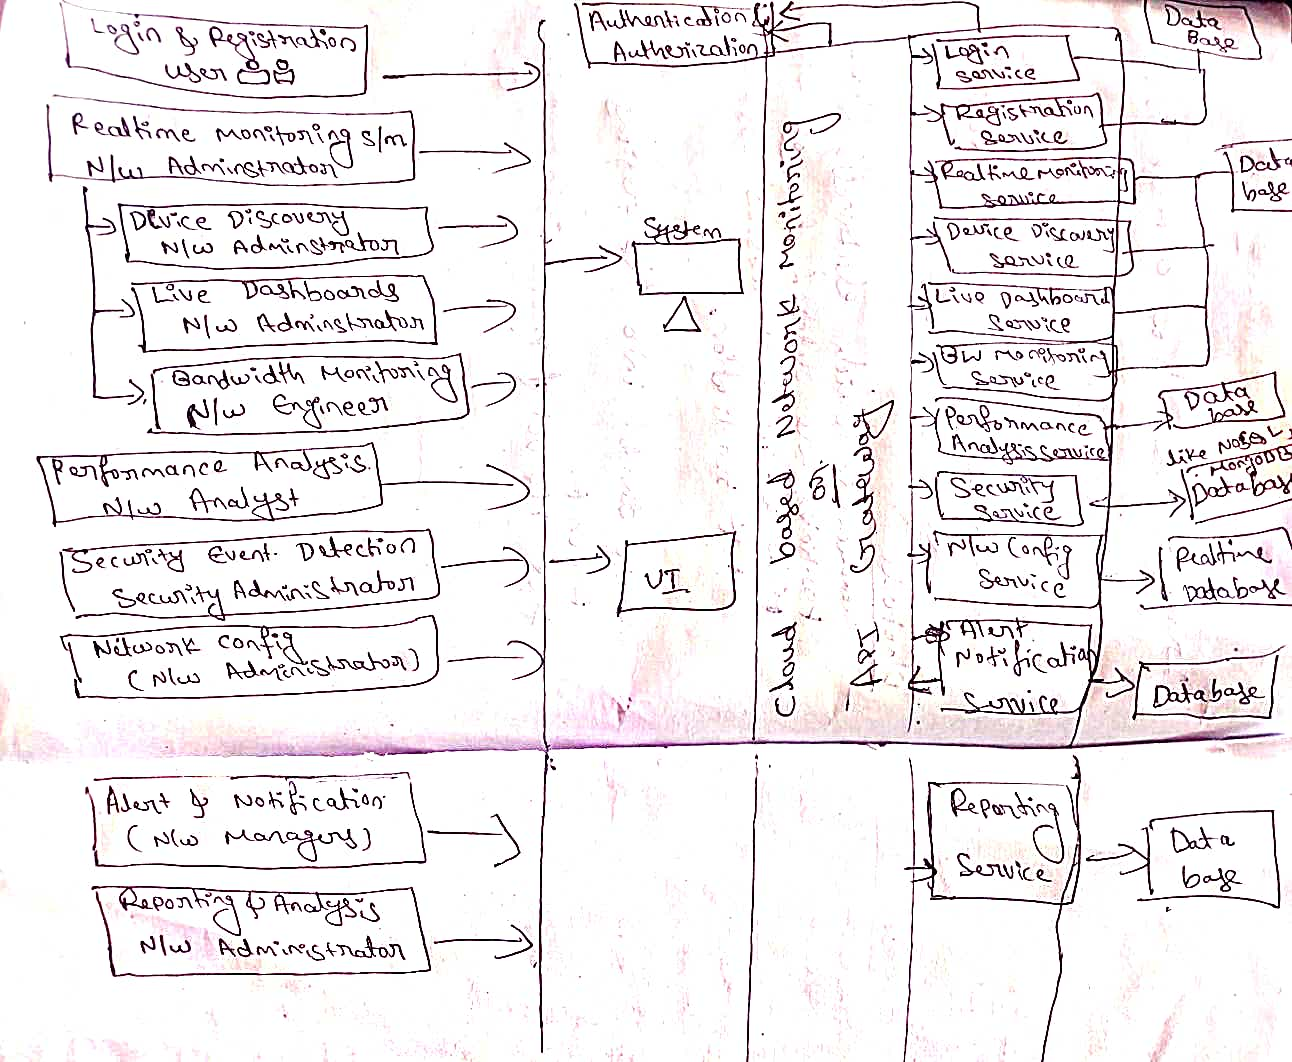 Login & Registration
user
Realtime Monitoring S/m
N/w Adminstrator
Device Discovery
N/w Adminstrator
Live Dashboards
N/w Adminstrator
Bandwidth Monitoring
N/w Engineer
Performance Analysis.
N/w Analyst
Security Event Detection
Security Administrator
Network Config
(N/w Administrator)
Alert & Notification
(N/w Managers)
Reporting & Analysis
N/w Administrator
Authentication &
Autherization
System
UI
Cloud based Network Monitoring
or
API Gateway
Login
Service
Registration
Service
Realtime Monitoring
Service
Device Discovery
Service
Live Dashboard
Service
BW Monitoring
Service
Performance
Analysis Service
Security
Service
N/w Config
Service
Alert
Notification
Service
Reporting
Service
Data
Base
Data
base
Data
base
like NoSQL,
MongoDB
Database
Realtime
Database
Database
Data
base